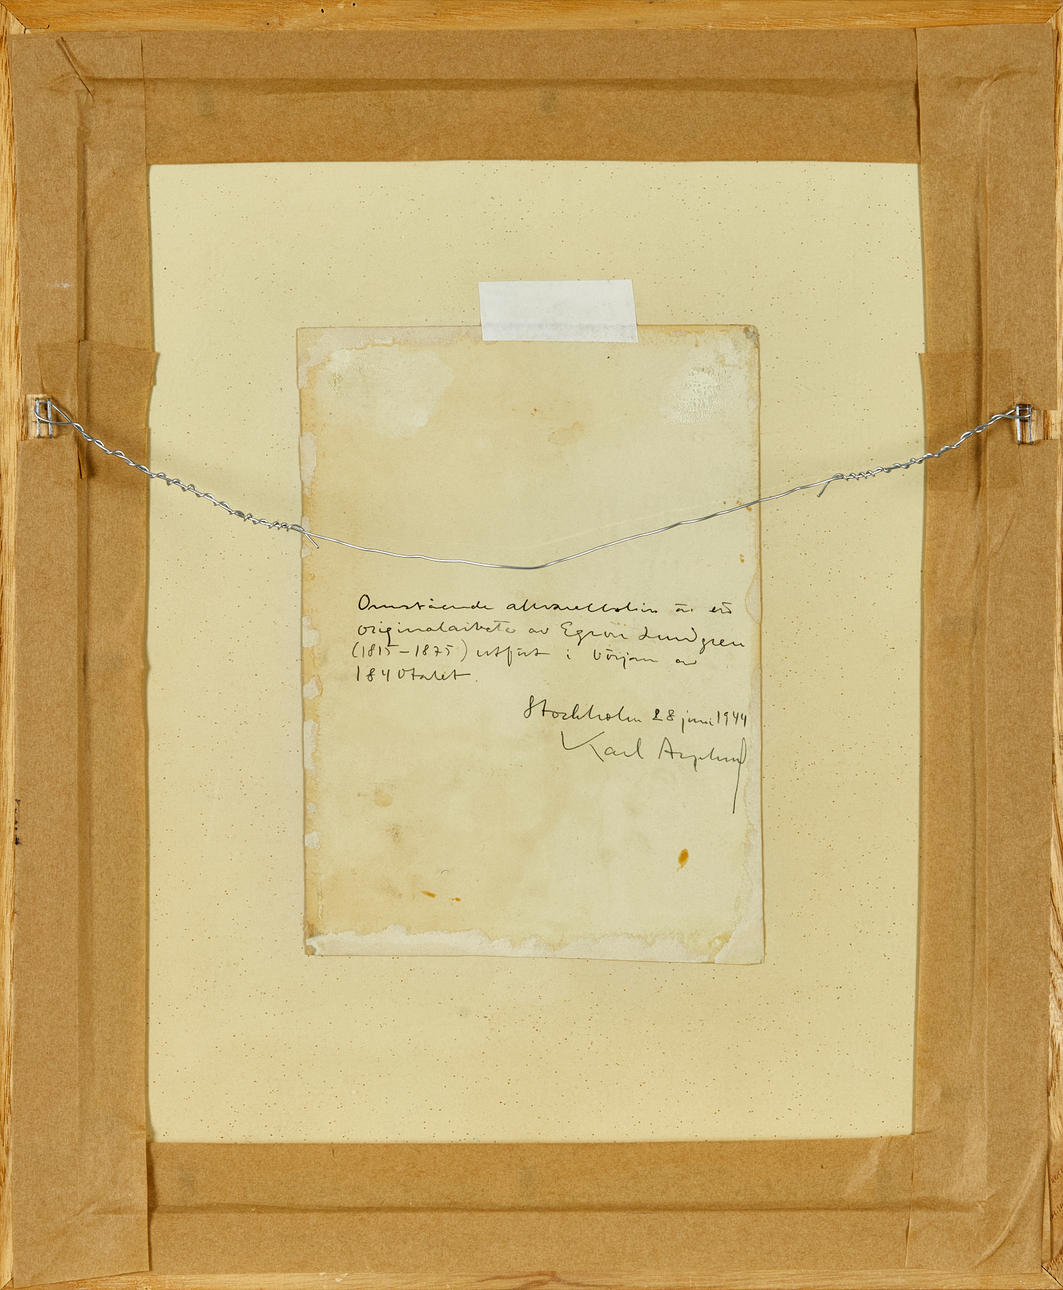 Omstående akvarellstudie är ett
originalarbete av Egron Lundgren
(1815–1875) utfört i början av
1840talet.
Stockholm 28 juni 1944
Karl Asplund